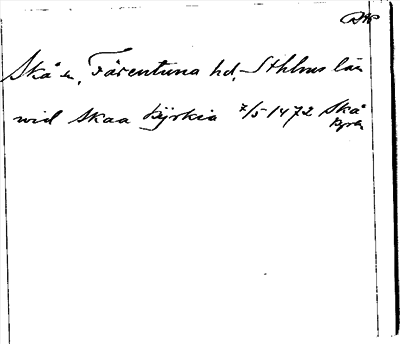 Skå sn, Färentuna hd, Sthlms län
wid Skaa kyrkia 7/5 1472 Skå